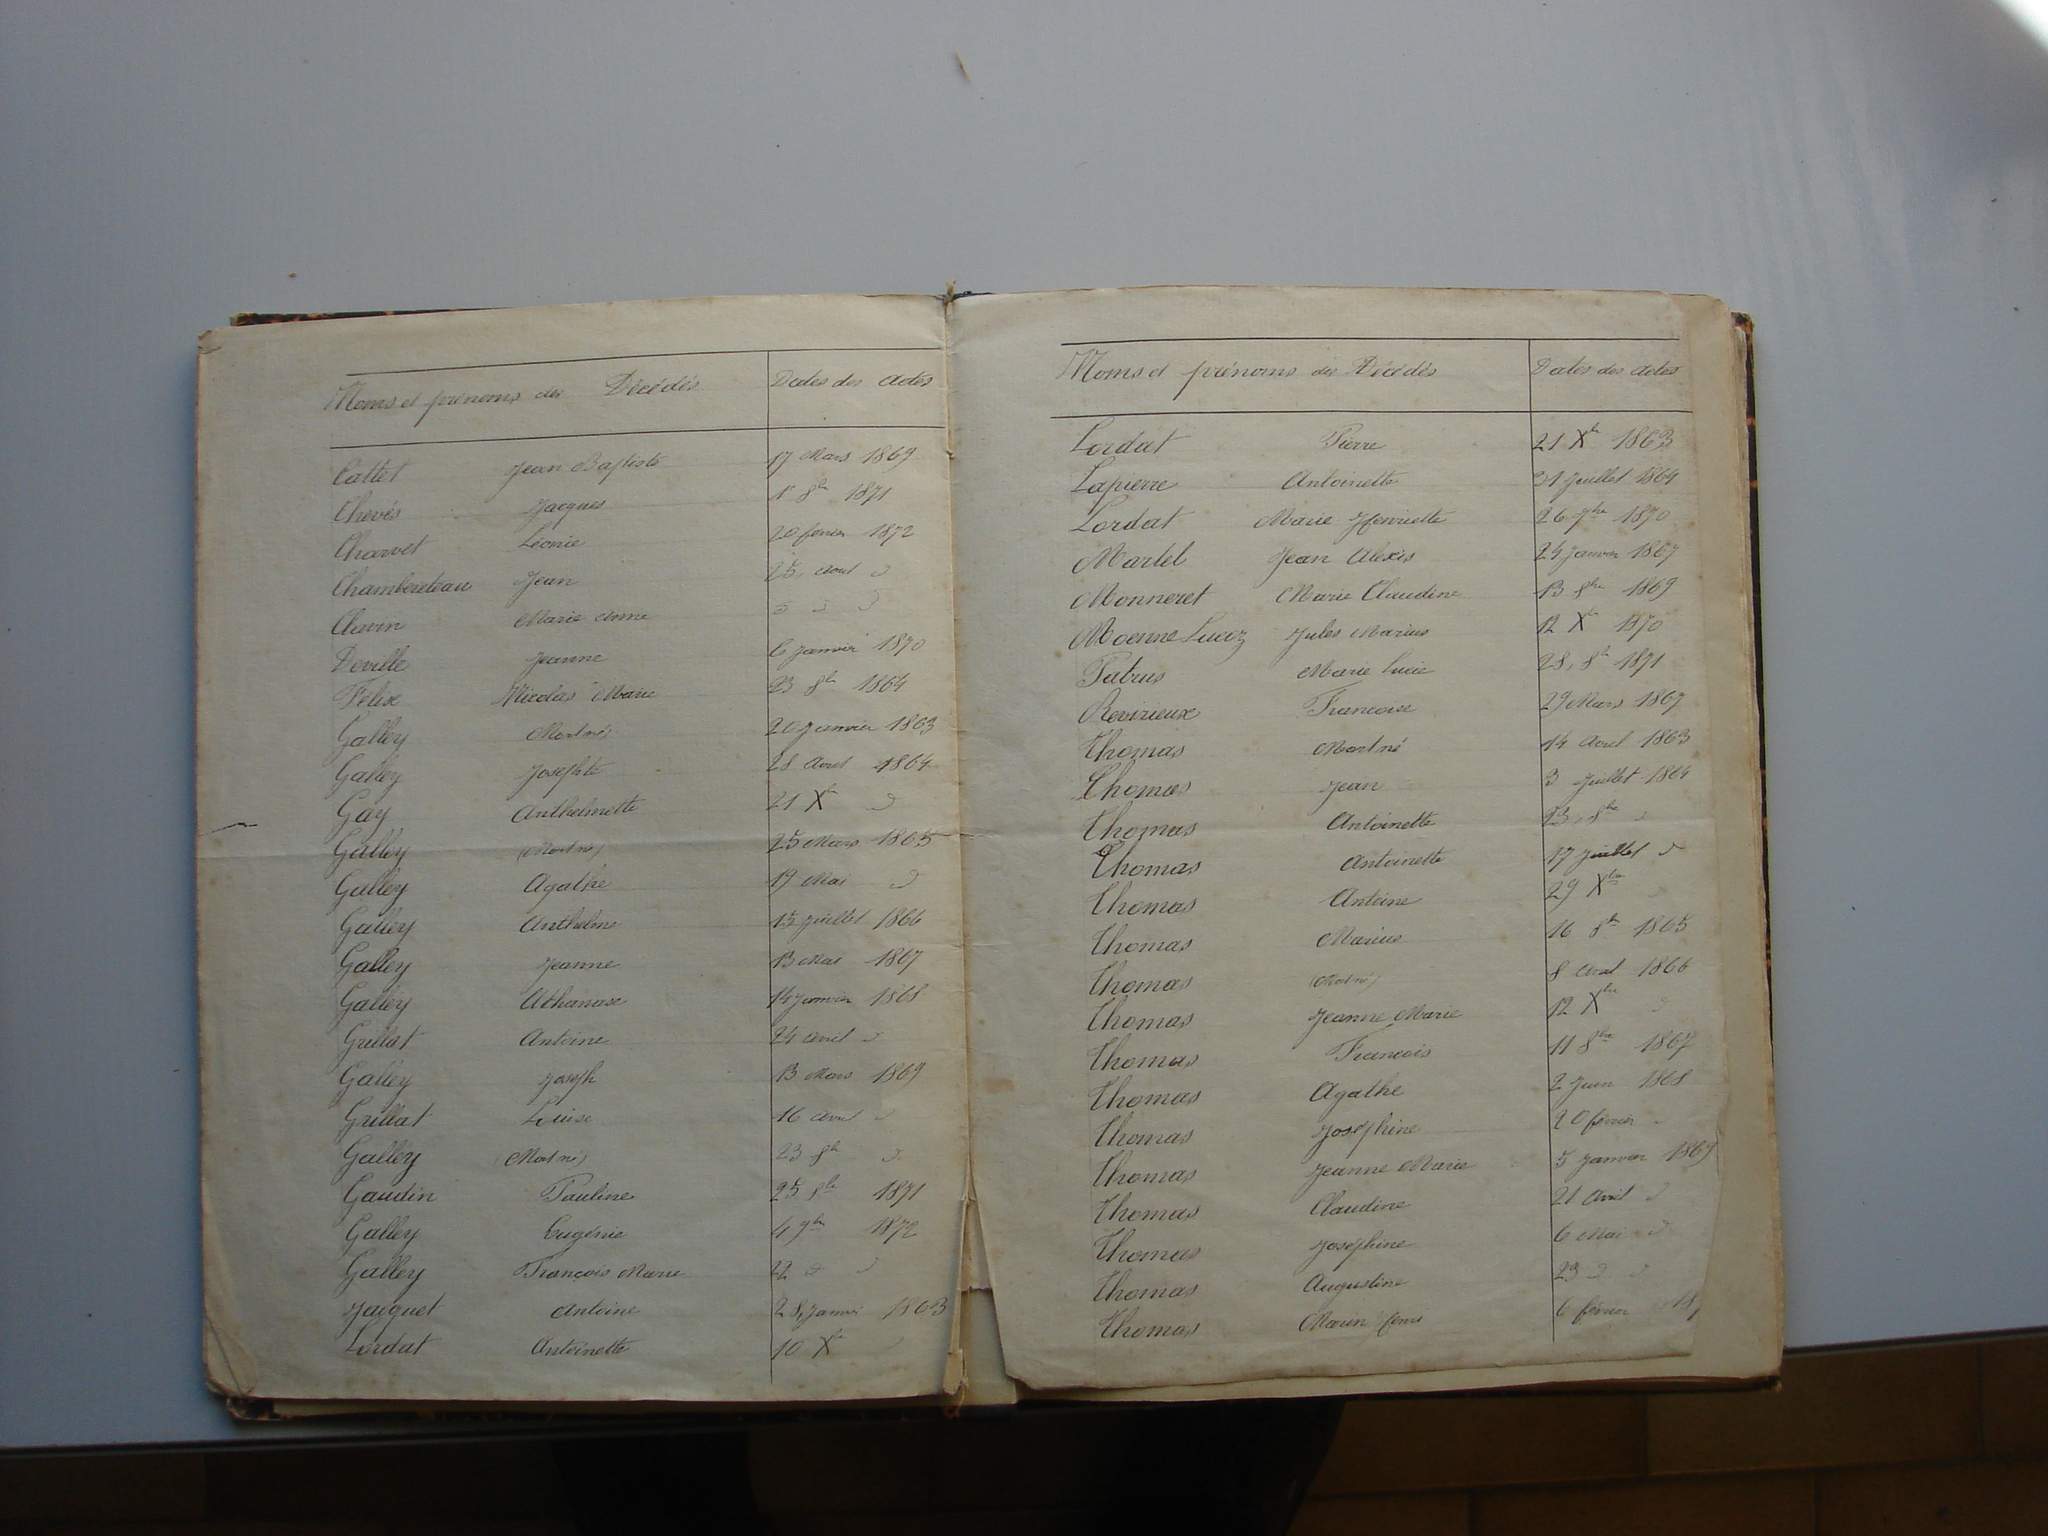 Noms et prénoms des Décédés Dates des actes
Cattet Jean Baptiste 17 Mars 1869
Chevés Jacques 1r 8bre 1871
Charvet Léonie 20 fevrier 1872
Chambereteau Jean 25, Aout d
Chevin Marie Anne d d d
Deville Jeanne 6 Janvier 1870
Felix Nicolas Marie 23 8bre 1864
Galley Mort né 20 Janvier 1863
Galley Josephte 28 Aout 1864
Gay Anthelmette 21 Xbre d
Galley (Mort né) 25 Mars 1865
Galley Agathe 19 Mai d
Galley Anthelme 15 Juillet 1866
Galley Jeanne 13 Mai 1867
Galley Athanase 14 Janvier 1868
Grillat Antoine 24 Avril d
Galley Joseph 13 Mars 1869
Grillat Louise 16 Avril d
Galley (Mort né) 23 8bre d
Gaudin Pauline 25 8bre 1871
Galley Eugénie 4 7bre 1872
Galley François Marie 22 d d
Jacquet Antoine 28, Janvier 1863
Lordat Antoinette 10 Xbre d
Noms et prénoms des Décédés Dates des actes
Lordat Pierre 21 Xbre 1863
Lapierre Antoinette 31 Juillet 1864
Lordat Marie Henriette 26 7bre 1870
Martel Jean Alexis 24 Janvier 1867
Monneret Marie Claudine 13 8bre 1869
Moenne Lucoz Jules Marius 12 Xbre 1870
Patrus Marie Lucie 28, 8bre 1871
Revirieux Francoise 29 Mars 1867
Thomas Mort né 14 Aout 1863
Thomas Jean 3 Juillet 1864
Thomas Antoinette 23, 8bre d
Thomas Antoinette 17 Juillet d
Thomas Antoine 29 Xbre d
Thomas Marius 16 8bre 1865
Thomas (Mort né) 8 Avril 1866
Thomas Jeanne Marie 12 Xbre d
Thomas Francois 11 8bre 1867
Thomas Agathe 2 Juin 1868
Thomas Joséphine 20 fevrier d
Thomas Jeanne Marie 5 Janvier 1869
Thomas Claudine 21 Avril d
Thomas Joséphine 6 Mai d
Thomas Augustine 23 d d
Thomas 6 fevrier 18